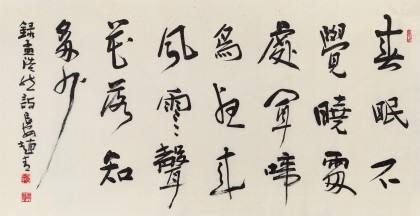 春眠不
覺曉處
處聞啼
鳥夜來
風雨聲
花落知
多少
錄孟浩然詩